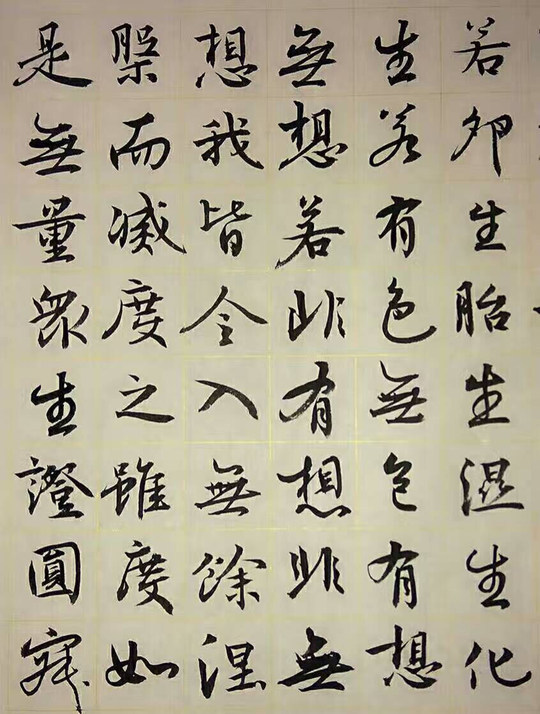 若卵生胎生濕生化
生若有色無色有想
無想若非有想非無
想我皆令入無餘涅
槃而滅度之雖度如
是無量衆生證圓寂